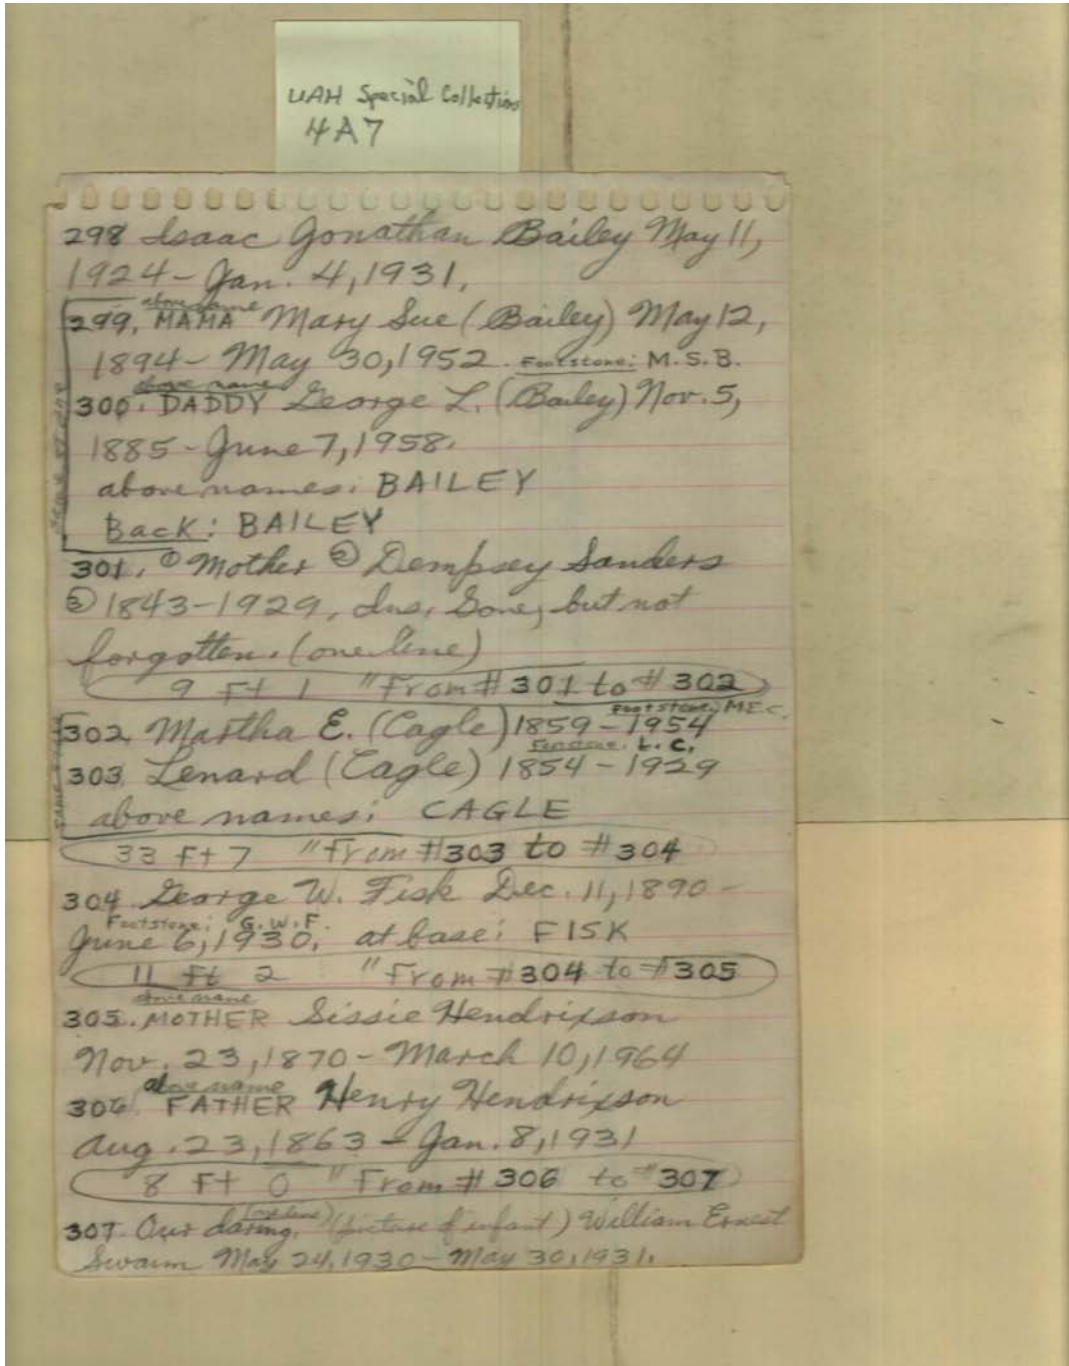 UAH Special Collections
4A7
298 Isaac Gonathan Bailey May 11,
1924 - Jan. 4, 1931.
above name
299. MAMA Mary Sue (Bailey) May 12,
1894 - May 30, 1952. Footstone: M.S.B.
above name
300. DADDY George L. (Bailey) Nov. 5,
1885 - June 7, 1958.
above names: BAILEY
Back: BAILEY
301. ① Mother ② Dempsey Sanders
③ 1843-1929, Ins. Gone, but not
forgotten. (one line)
9 Ft 1 " From # 301 to # 302
Footstone: M.E.C.
302. Martha E. (Cagle) 1859 - 1954
L. C.
303 Lenard (Cagle) 1854 - 1929
above names: CAGLE
33 Ft 7 " From #303 to #304
304 George W. Fisk Dec. 11, 1890 -
Footstone: G.W.F.
June 6, 1930. at base: FISK
11 Ft 2 " From #304 to #305
above name
305. MOTHER Sissie Hendrixson
Nov. 23, 1870 - March 10, 1964
above name
306. FATHER Henry Hendrixson
Aug. 23, 1863 - Jan. 8, 1931
8 Ft 0 " From # 306 to #307
(one line)
307. Our daring. (picture of infant) William Ernest
Swaim May 24, 1930 - May 30, 1931.